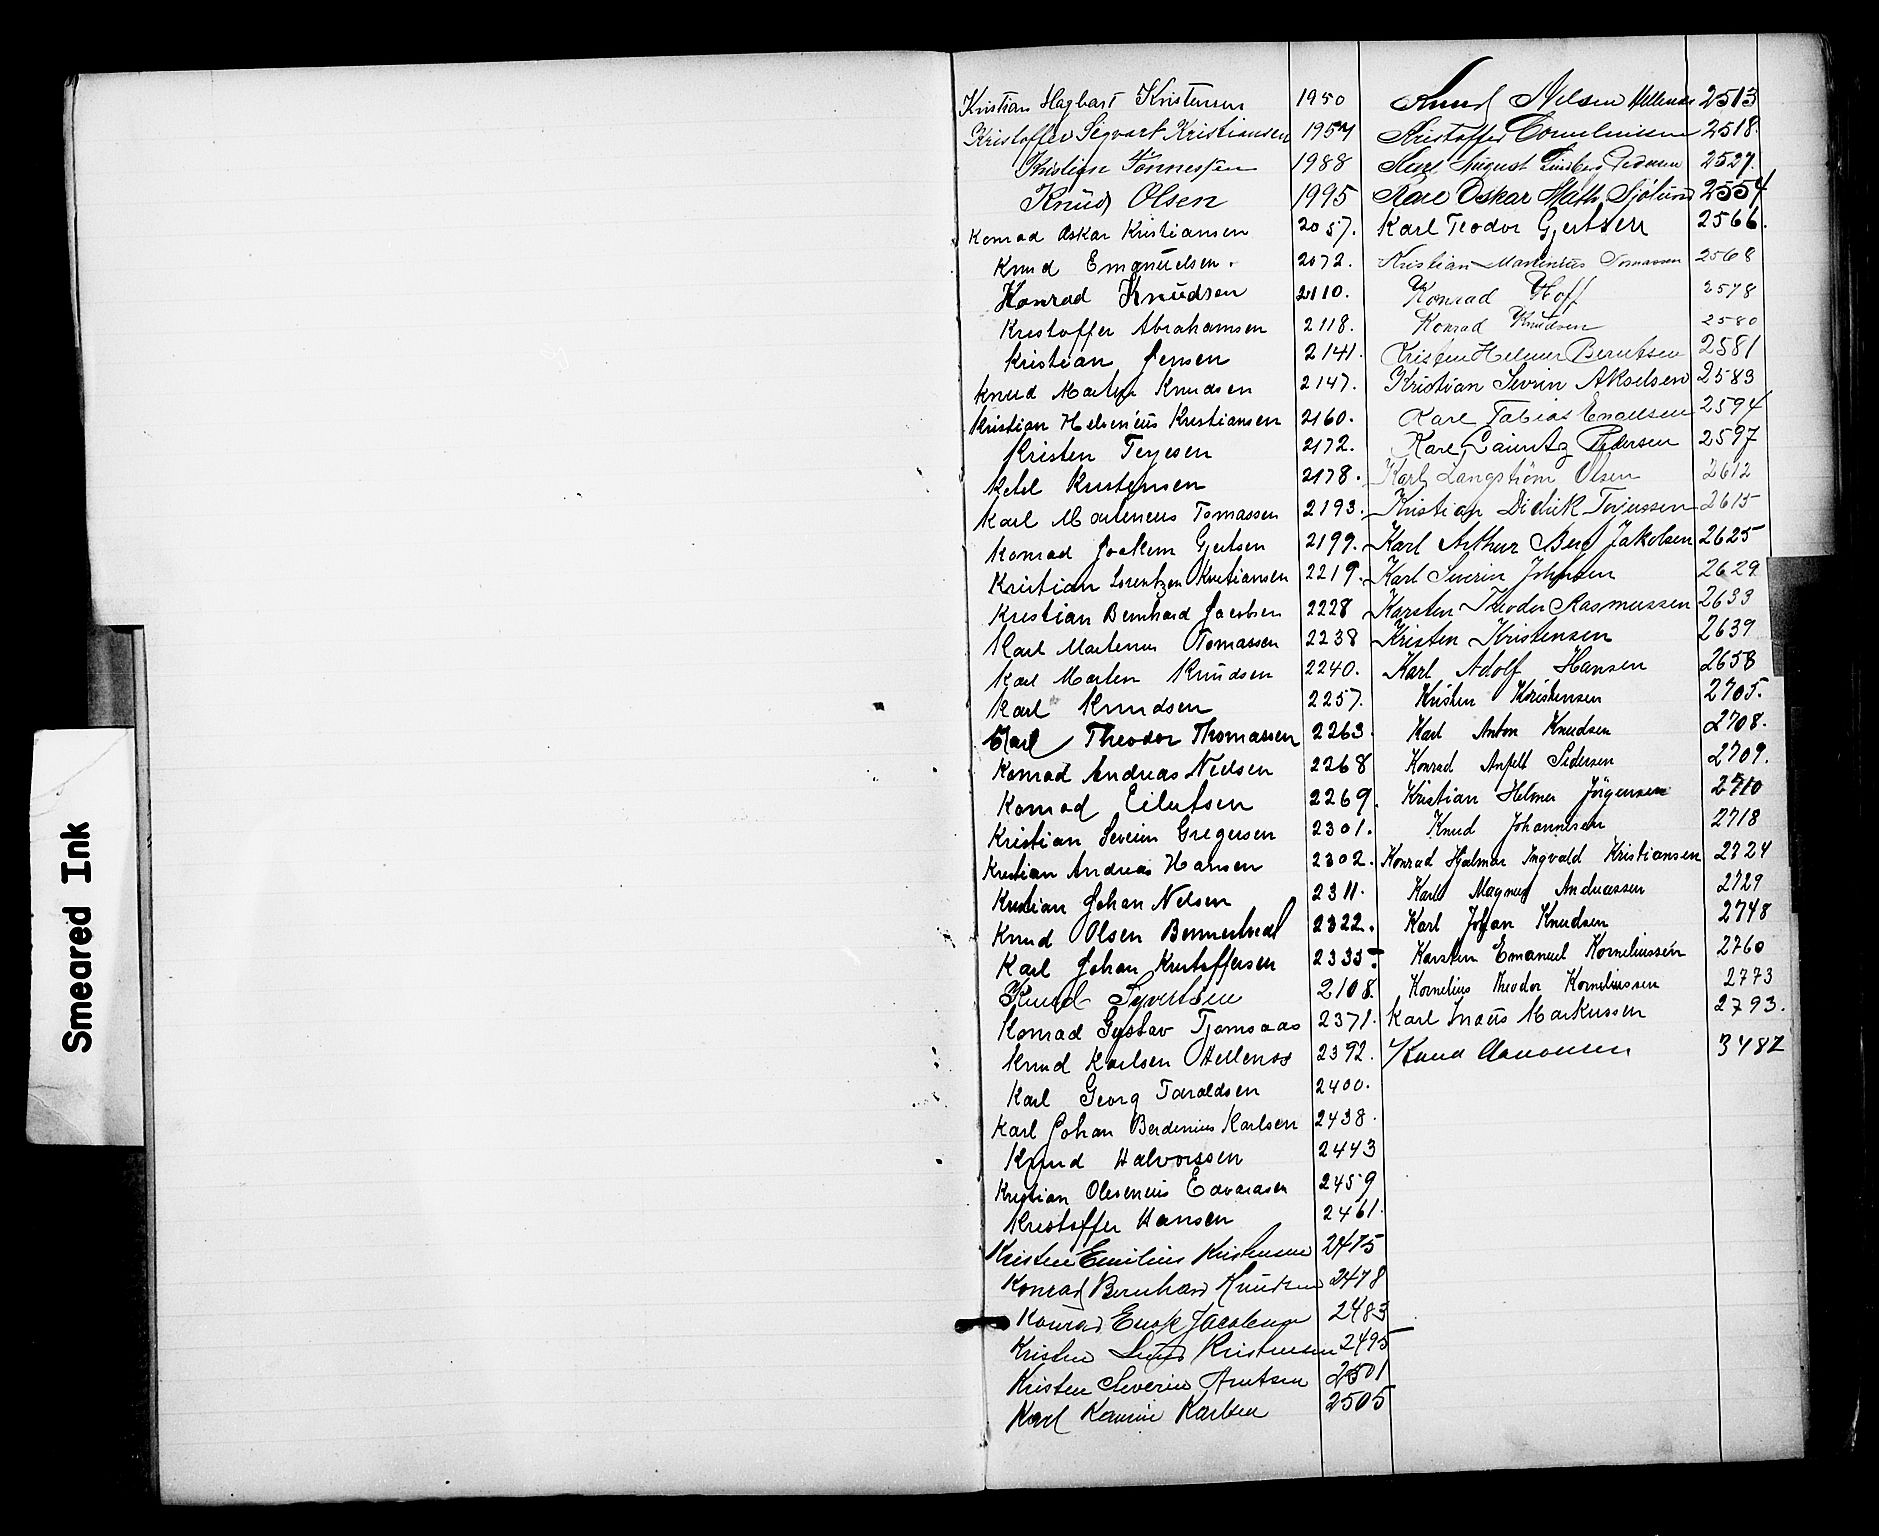 Smeared Ink
Kristian Hagbart Kristensen 1950
Kristoffer Sigvart Kristiansen 1957
Kristian Tönnessen 1988
Knud Olsen 1995
Konrad Oskar Kristiansen 2057.
Knud Emanuelsen. 2072.
Konrad Knudsen 2110.
Kristoffer Abrahamsen 2118.
Kristian Jensen 2141.
Knud Martin Knudsen 2147.
Kristian Helenius Kristiansen 2160.
Kristen Terjesen 2172.
Ketel Kristensen 2178.
Karl Martenius Tomassen 2193.
Konrad Joakim Gjertsen 2199.
Kristian Lorentzen Kristiansen 2219.
Kristian Bernhard Jacobsen 2228
Karl Martenius Tomassen 2238
Karl Marten Knudsen 2240.
Karl Knudsen 2257.
Karl Theodor Thomassen 2263.
Konrad Andreas Nielsen 2268
Konrad Eilertsen 2269.
Kristian Severin Gregersen 2301.
Kristian Andreas Hansen 2302.
Kristian Johan Nelsen 2311.
Knud Olsen 2322.
Karl Johan Kristoffersen 2335.
Knud Syvertsen 2108.
Konrad Gustav Tjomsaas 2371.
Knud Karlsen Hellenes 2392.
Karl Georg Taraldsen 2400.
Karl Johan Berdinius Karlsen 2438.
Knud Halvorssen 2443
Kristian Olesenius Edvardsen 2459
Kristoffer Hansen 2461.
Kristen Emilius Kristensen 2475
Konrad Bernhard Knudsen 2478
Konrad Enok Jacobsen 2483
Kristen Lund Kristensen 2495
Kristen Severin Arntsen 2501
Karl Karlsen 2505
Knud Nelsen Hellenes 2513
Kristoffer Corneliussen 2518.
Karl August Lindberg Pedersen 2527
Karl Oskar Math. Sjølund 2554
Karl Teodor Gjertsen 2566.
Kristian Martinius Tomassen 2568
Konrad Hoff 2578
Konrad Knudsen 2580
Kristen Helmer Berntsen 2581
Kristian Sevrin Akselsen 2583
Karl Tobias Enoksen 2594
Karl Lauritz Pedersen 2597
Karl Langstrøm Olsen 2612
Kristian Didrik Torjussen 2615
Karl Arthur Berg Jakobsen 2625
Karl Severin Johnsen 2629
Karsten Theodor Rasmussen 2633
Kristen Kristensen 2639
Karl Adolf Hansen 2658
Kristen Kristensen 2705.
Karl Anton Knudsen 2708.
Konrad Anfelt Pedersen 2709.
Kristian Helmer Jörgensen 2710
Knud Johannesen 2718
Konrad Hjalmar Ingvald Kristiansen 2724
Karl Magnus Andreassen 2729
Karl Johan Knudsen 2748
Karsten Emanuel Korneliussen 2760
Kornelius Theodor Korneliussen 2773
Karl Markussen 2793.
Knud Aanonsen 3487